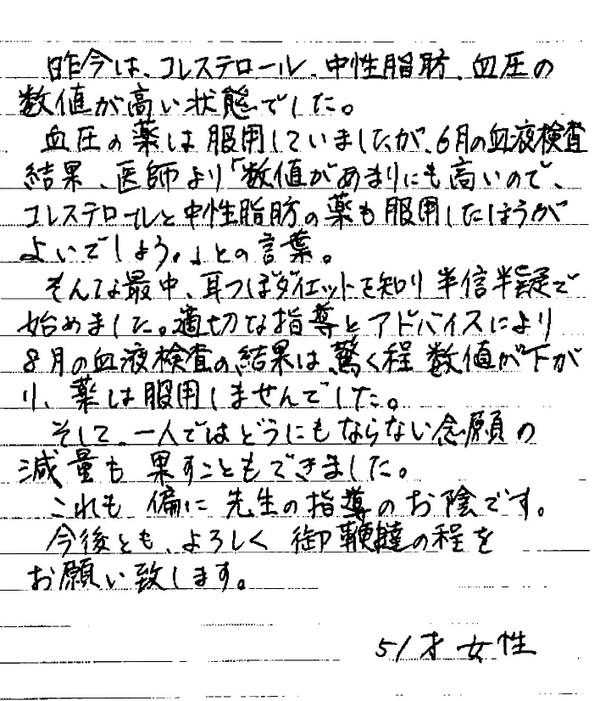 昨今は、コレステロール、中性脂肪、血圧の
数値が高い状態でした。
血圧の薬は服用していましたが、6月の血液検査
結果、医師より「数値があまりにも高いので、
コレステロールと中性脂肪の薬も服用したほうが
よいでしょう。」との言葉。
そんな最中、耳つぼダイエットを知り半信半疑で
始めました。適切な指導とアドバイスにより
8月の血液検査の結果は、驚く程数値が下が
り、薬は服用しませんでした。
そして、一人ではどうにもならない念願の
減量も果すこともできました。
これも偏に先生の指導のお陰です。
今後とも、よろしく御鞭撻の程を
お願い致します。
51才女性